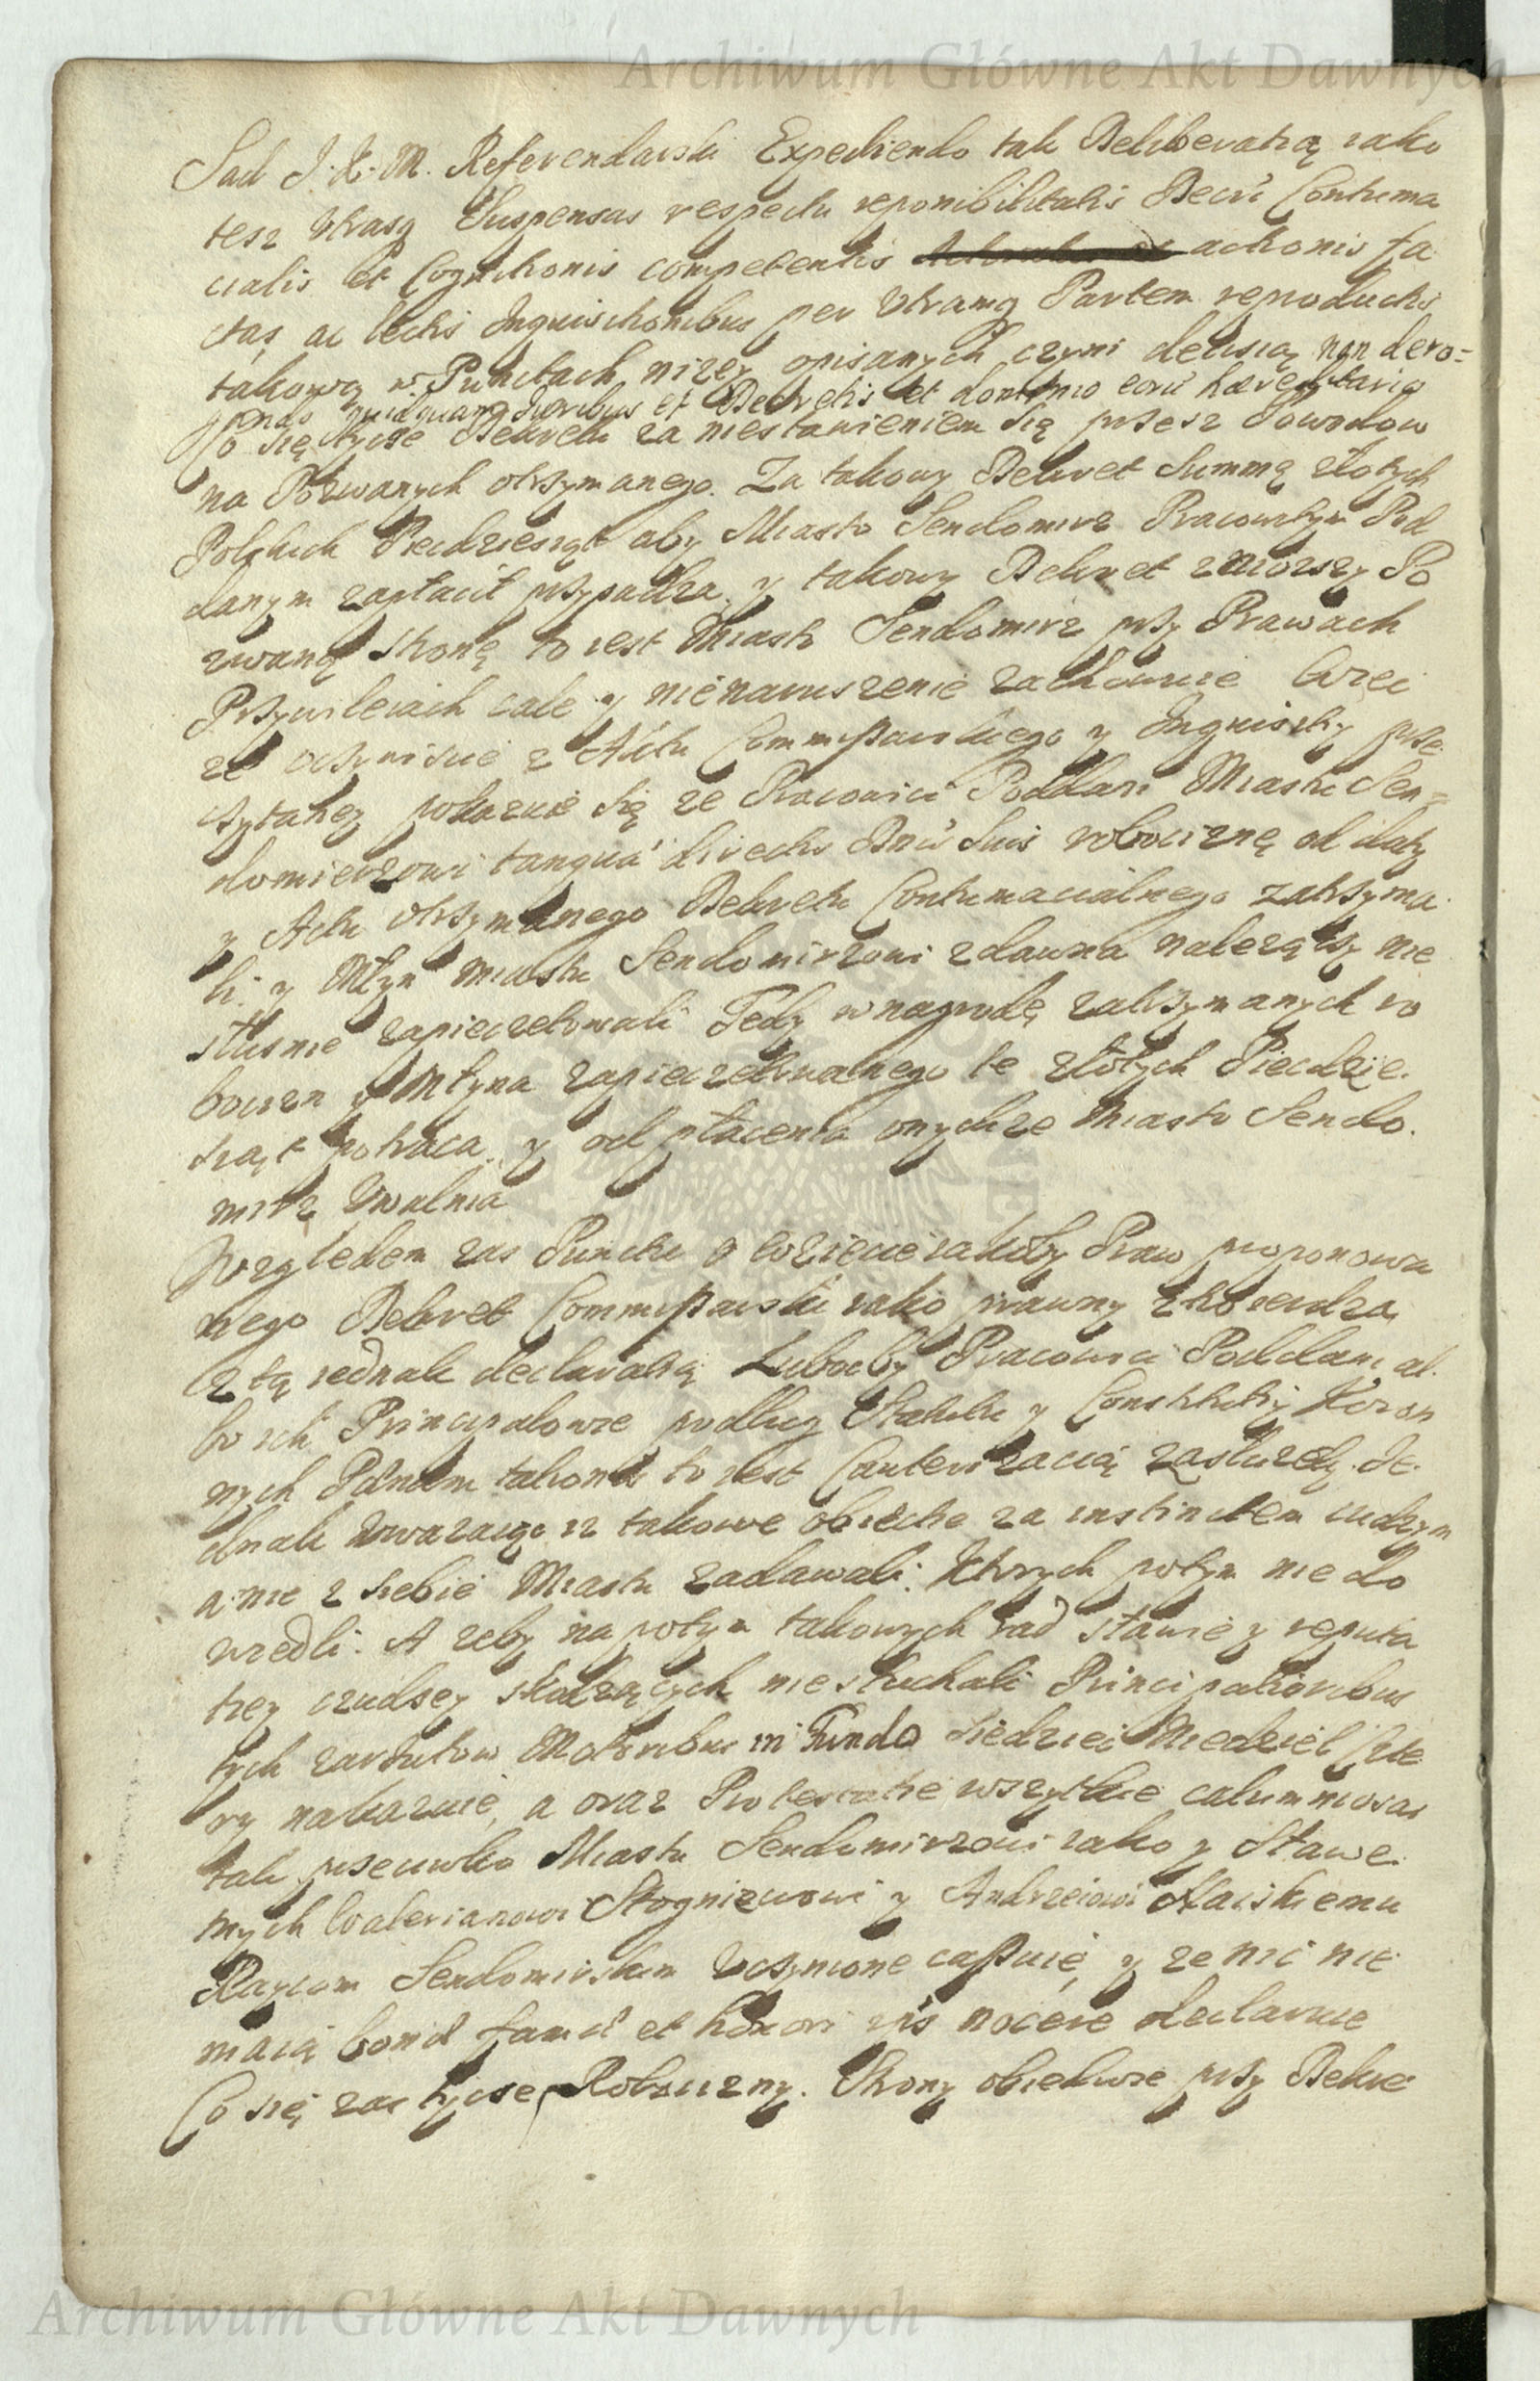 Archiwum Główne Akt Dawnych
Sad J. K. M. Referendarski Expediendo tak Deliberatią iako
tesz Utrasq Suspensas respectu reponibilitatis Decrti Contuma
cialis et Cognitionis competentis actionis fa
ctas, ac lectis Inquisitionibus per Utramq Partem reproductis
takową w Punctach nizey opisanych czyni decisią non dero=
gando quidquam Iuribus et Decretis et dominio eoru hæreditario
Co się tycze Dekretu za niestawieniem się przesz Powodow
na Pozwanych otrzymanego. Za takowy Dekret Summą złotych
Polskich Piecdziesiąt aby Miasto Sendomirz Pracowitym Pod
danym zapłacił przysadza, y takowy Dekret zniozszy Po
zwaną Stronę to iest Miasto Sendomirz przy Prawach
Przywileiach cale y nienaruszenie zachowuie Wiec
ze oczywiscie z Actu Commissarskiego y Inquisity prze
czytaney pokazuie się ze Pracowici Poddani Miastu Sen=
domierzowi tanquā directo Dno Suo robociznę od daty
y Actu otrzymanego Dekretu Contumacialnego zatrzyma
li, y Młyn Miastu Sendomirzowi zdawna nalezączy nie
słusnie zapieczetowali Tedy w nagrodę zatrzymanych ro
bocizn y Młyna zapieczetowanego te złotych Piecdzie.
siąt potraca, y od płacenia onychze Miasto Sendo.
mirz Uwalnia
Względem zas Punctu o wziecie iakoby Praw proponowa
nego Dekret Commissarski iako prawny zatwierdza,
z tą iednak declaratią Luboćby Pracowici Poddani al.
bo ich Principalowie podług Statutu y Constitutiy Koron
nych Pænam talionis to iest Cauterizacią zasłuzely. Je.
dnak Uwazaiąc iz takowe obiecta za instinctem cudzym
a nie z siebie Miastu zadawali. Ktorych potym nie do
wiedli. A zeby na potym takowych rad sławie y reputa
tiey czudzey skodzących nie słuchali Principalioribus
tych zarzutow Motoribus in Fundo siedziec Niedziel Czte
ry nakazuie, a oraz Protestatie wszytkie calumniosas
tak przeciwko Miastu Sendomirzowi iako y Sławe.
tnych Walerianowi Stogniewowi y Andrzeiowi
Raycom Sendomirskim Uczynione cassuie, y ze nic nie
maią bonæ famæ et honori ijs nocere declaruie
Co się zas tycze Robocizny. Strony obiedwie przy Dekre
Archiwum Główne Akt Dawnych